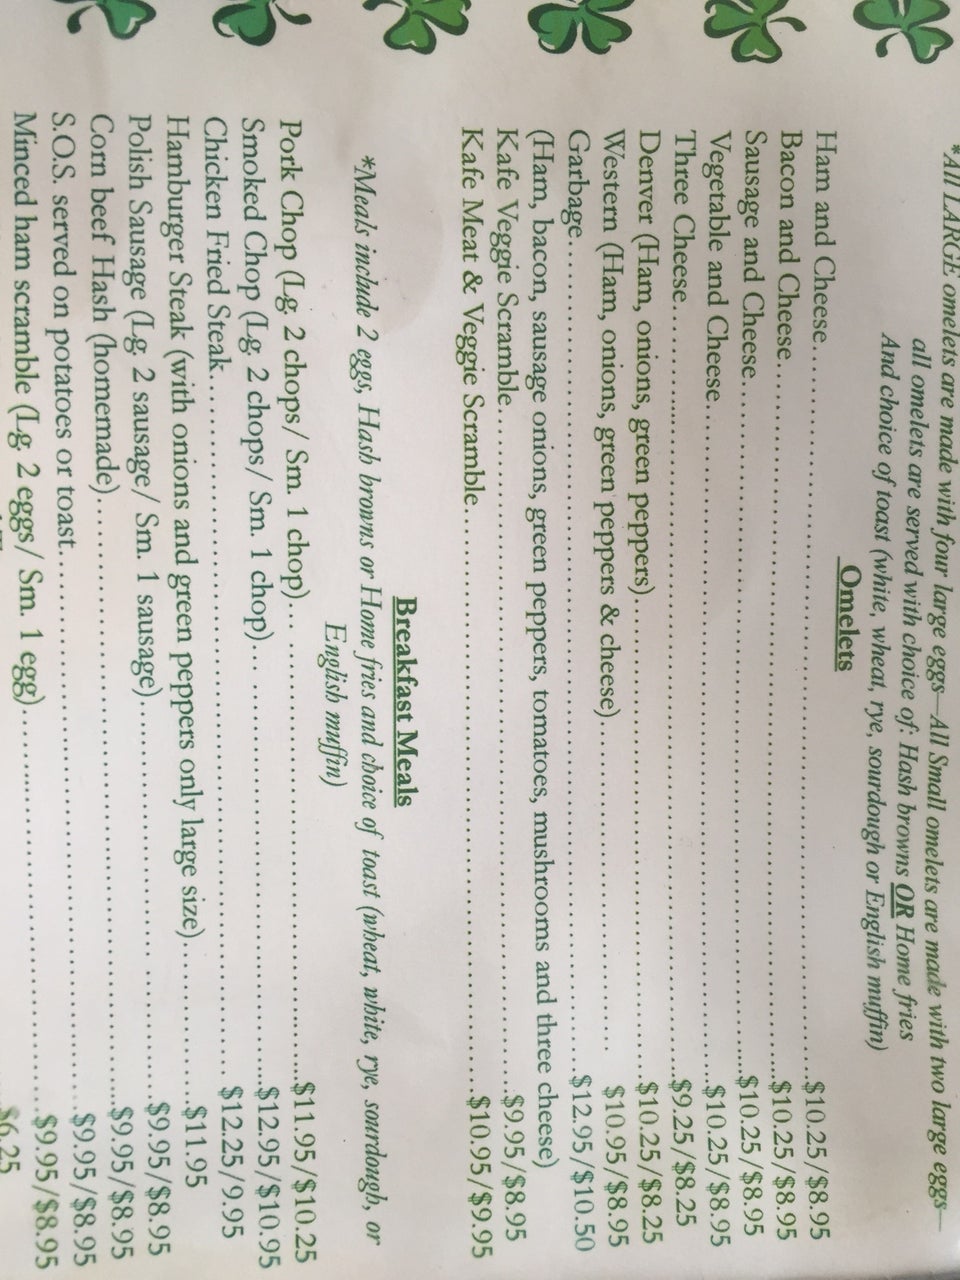 *All LARGE omelets are made with four large eggs—All Small omelets are made with two large eggs—
all omelets are served with choice of: Hash browns OR Home fries
And choice of toast (white, wheat, rye, sourdough or English muffin)
Omelets
Ham and Cheese.......$10.25/$8.95
Bacon and Cheese.......$10.25/$8.95
Sausage and Cheese.......$10.25/$8.95
Vegetable and Cheese.......$10.25/$8.95
Three Cheese.......$9.25/$8.25
Denver (Ham, onions, green peppers).......$10.25/$8.25
Western (Ham, onions, green peppers & cheese).......$10.95/$8.95
Garbage.......$12.95/$10.50
(Ham, bacon, sausage onions, green peppers, tomatoes, mushrooms and three cheese)
Kafe Veggie Scramble.......$9.95/$8.95
Kafe Meat & Veggie Scramble.......$10.95/$9.95
Breakfast Meals
*Meals include 2 eggs, Hash browns or Home fries and choice of toast (wheat, white, rye, sourdough, or
English muffin)
Pork Chop (Lg. 2 chops/ Sm. 1 chop).......$11.95/$10.25
Smoked Chop (Lg. 2 chops/ Sm. 1 chop).......$12.95/$10.95
Chicken Fried Steak.......$12.25/9.95
Hamburger Steak (with onions and green peppers only large size).......$11.95
Polish Sausage (Lg. 2 sausage/ Sm. 1 sausage).......$9.95/$8.95
Corn beef Hash (homemade).......$9.95/$8.95
S.O.S. served on potatoes or toast.......$9.95/$8.95
Minced ham scramble (Lg. 2 eggs/ Sm. 1 egg).......$9.95/$8.95
$6.25